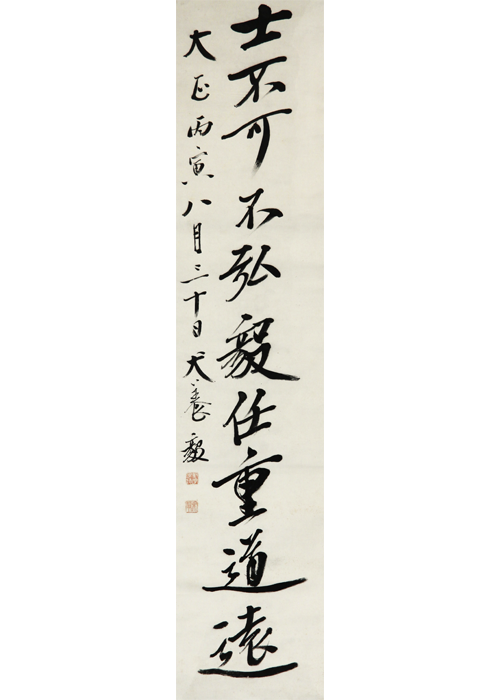 士不可不弘毅任重道遠
大正丙寅八月三十日犬養毅